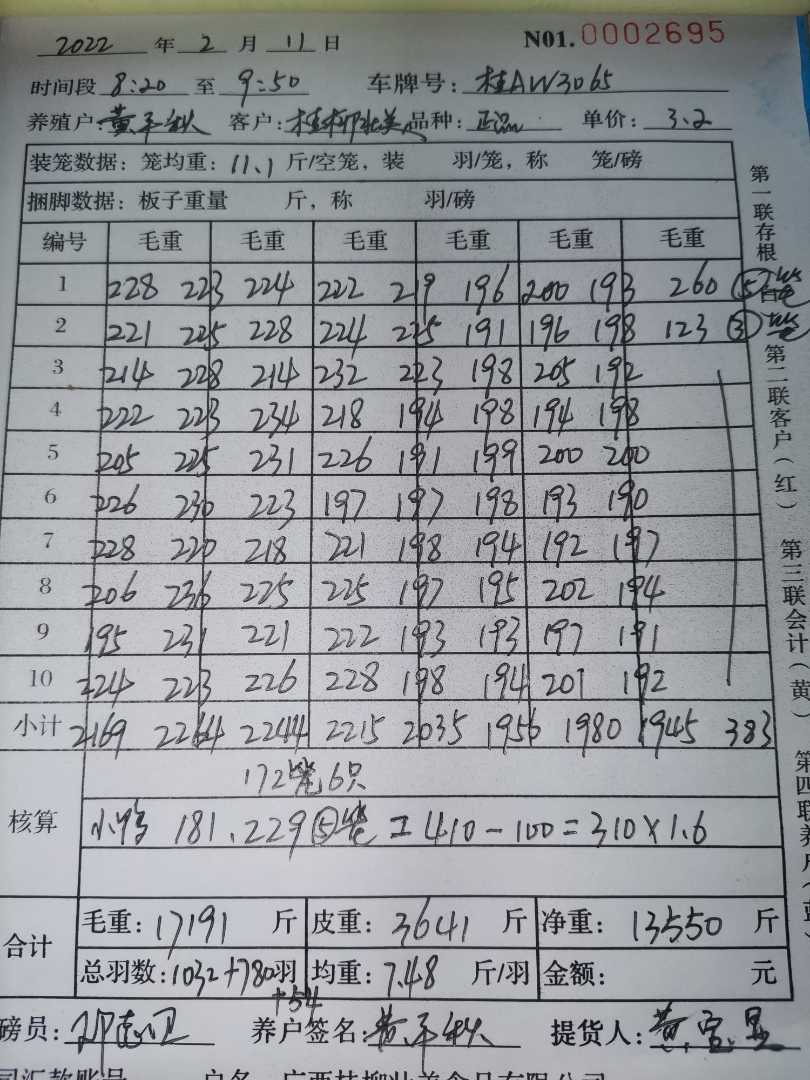 2022 年 2 月 11 日 N01. 0002695
时间段 8:20 至 9:50 车牌号: 桂AW3065
养殖户: 黄 客户: 桂柳壮美 品种: 正品 单价: 3.2
装笼数据: 笼均重: 11.1 斤/空笼, 装 羽/笼, 称 笼/磅
捆脚数据: 板子重量 斤, 称 羽/磅
编号 毛重 毛重 毛重 毛重 毛重 毛重
1 228 223 224 222 219 196 200 193 260 ⑤笼
2 221 225 228 224 225 191 196 198 123 ③笼
3 214 228 214 232 223 198 205 192
4 222 223 234 218 194 198 194 198
5 205 225 231 226 191 199 200 200
6 226 230 223 197 197 198 193 190
7 228 220 218 221 198 194 192 197
8 206 236 225 225 197 195 202 194
9 195 231 221 222 193 193 197 191
10 224 223 226 228 198 194 201 192
小计 2169 2264 2244 2215 2035 1956 1980 1945 383
核算 172笼6只
小鸭 181、229⑤笼 = 410-100=310×1.6
合计 毛重: 17191 斤 皮重: 3641 斤 净重: 13550 斤
总羽数: 1032+780羽 均重: 7.48 斤/羽 金额: 元
+54
磅员: 养户签名: 黄 提货人: 黄
司汇款账号 户名 广西桂柳壮美食品有限公司
第一联存根
第二联客户(红)
第三联会计(黄)
第四联养户(蓝)